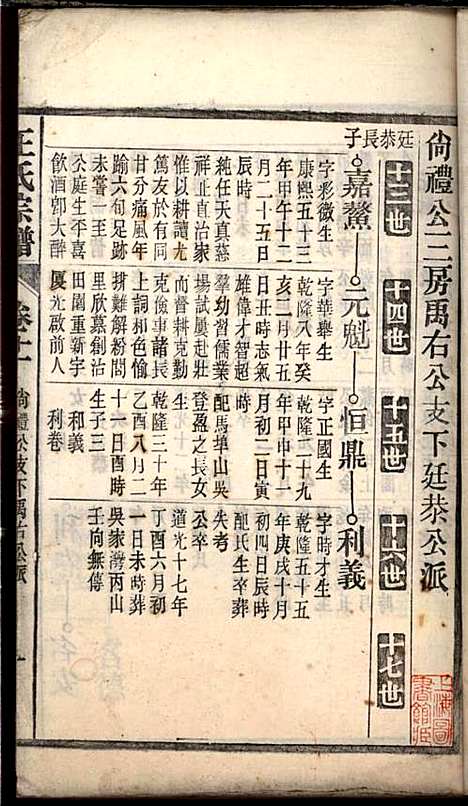 尙禮公三房禹右公支下廷恭公派
十三世
十四世
十五世
十六世
十七世
廷恭長子
嘉鰲
元魁
恒鼎
利義
字彩微生
康熙五十三
年甲午十二
月二十五日
辰時
純任天真慕
祥止直治家
惟以耕讀尤
篤友於有同
甘分痛風年
踰六旬足跡
未嘗一至
公庭生平喜
飲酒卽大醉
字華舉生
乾隆八年癸
亥二月廿五
日丑時志氣
雄偉才智超
羣幼習儒業
揚試屢赴壯
而督耕克勤
克儉事諸長
上詞和色愉
排難解粉問
里欣慕創沽
田園重新宇
厦光啟前人
字正國生
乾隆二十九
年甲申十一
月初二日寅
時
配馬埠山吳
登盈之長女
生
乾隆三十年
乙酉八月二
十六日酉時
生子三
和義
利卷
字時才生
乾隆五十五
年庚戌十月
初四日辰時
配氏生卒葬
失考
公卒
道光十七年
丁酉六月初
一日未時葬
吳家灣丙山
壬向無傳
王氏宗譜
卷十一
尙禮公支下禹右公派
一
上海圖書館藏